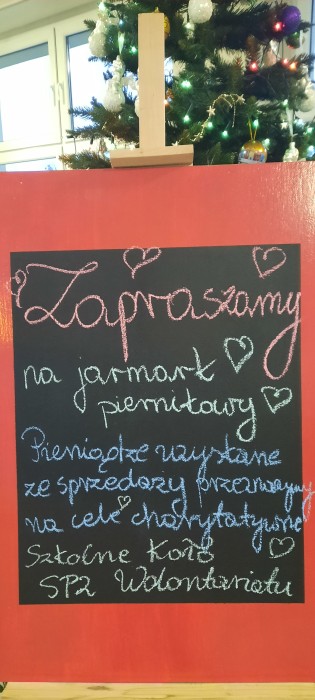 Zapraszamy
na jarmark
piernikowy
Pieniądze uzyskane
ze sprzedaży przeznaczymy
na cele charytatywne
Szkolne Koło
SP2 Wolontariatu